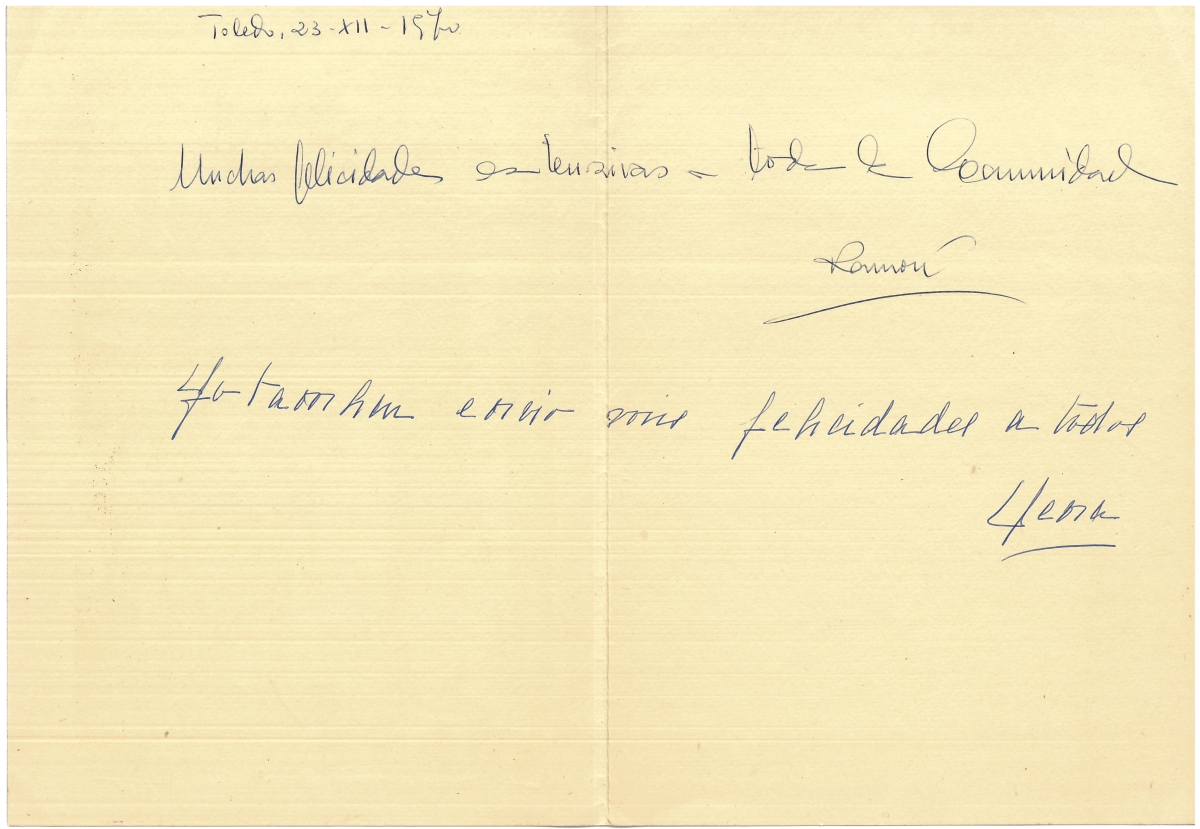 Toledo, 23-XII-1970
Muchas felicidades extensivas a toda la Comunidad
Ramón
Yo tambien envio mis felicidades a todos